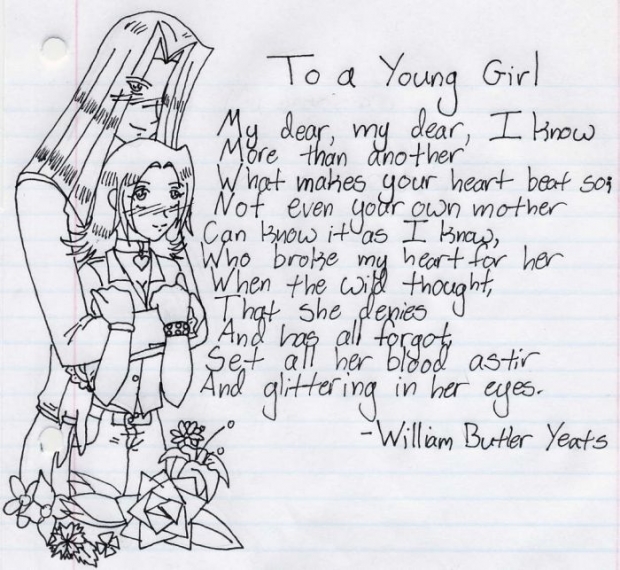 To a Young Girl
My dear, my dear, I know
More than another
What makes your heart beat so;
Not even your own mother
Can know it as I know,
Who broke my heart for her
When the wild thought,
That she denies
And has all forgot,
Set all her blood astir
And glittering in her eyes.
-William Butler Yeats